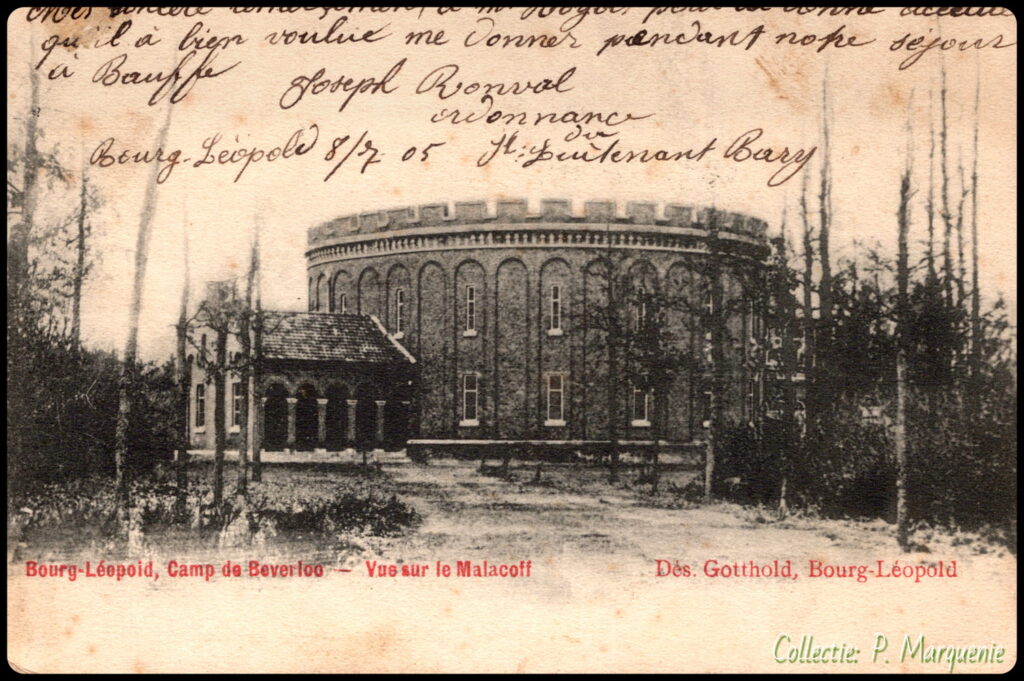 Mes sincère remerciement, à mr
qu'il à bien voulue me donner pendant notre séjour
à Bauffe
Joseph Ronval
ordonnance
du
Bourg-Léopold 8/7 05 St: Lieutenant Bary
Bourg-Léopold, Camp de Beverloo — Vue sur le Malacoff
Dés. Gotthold, Bourg-Léopold
Collectie: P. Marquenie